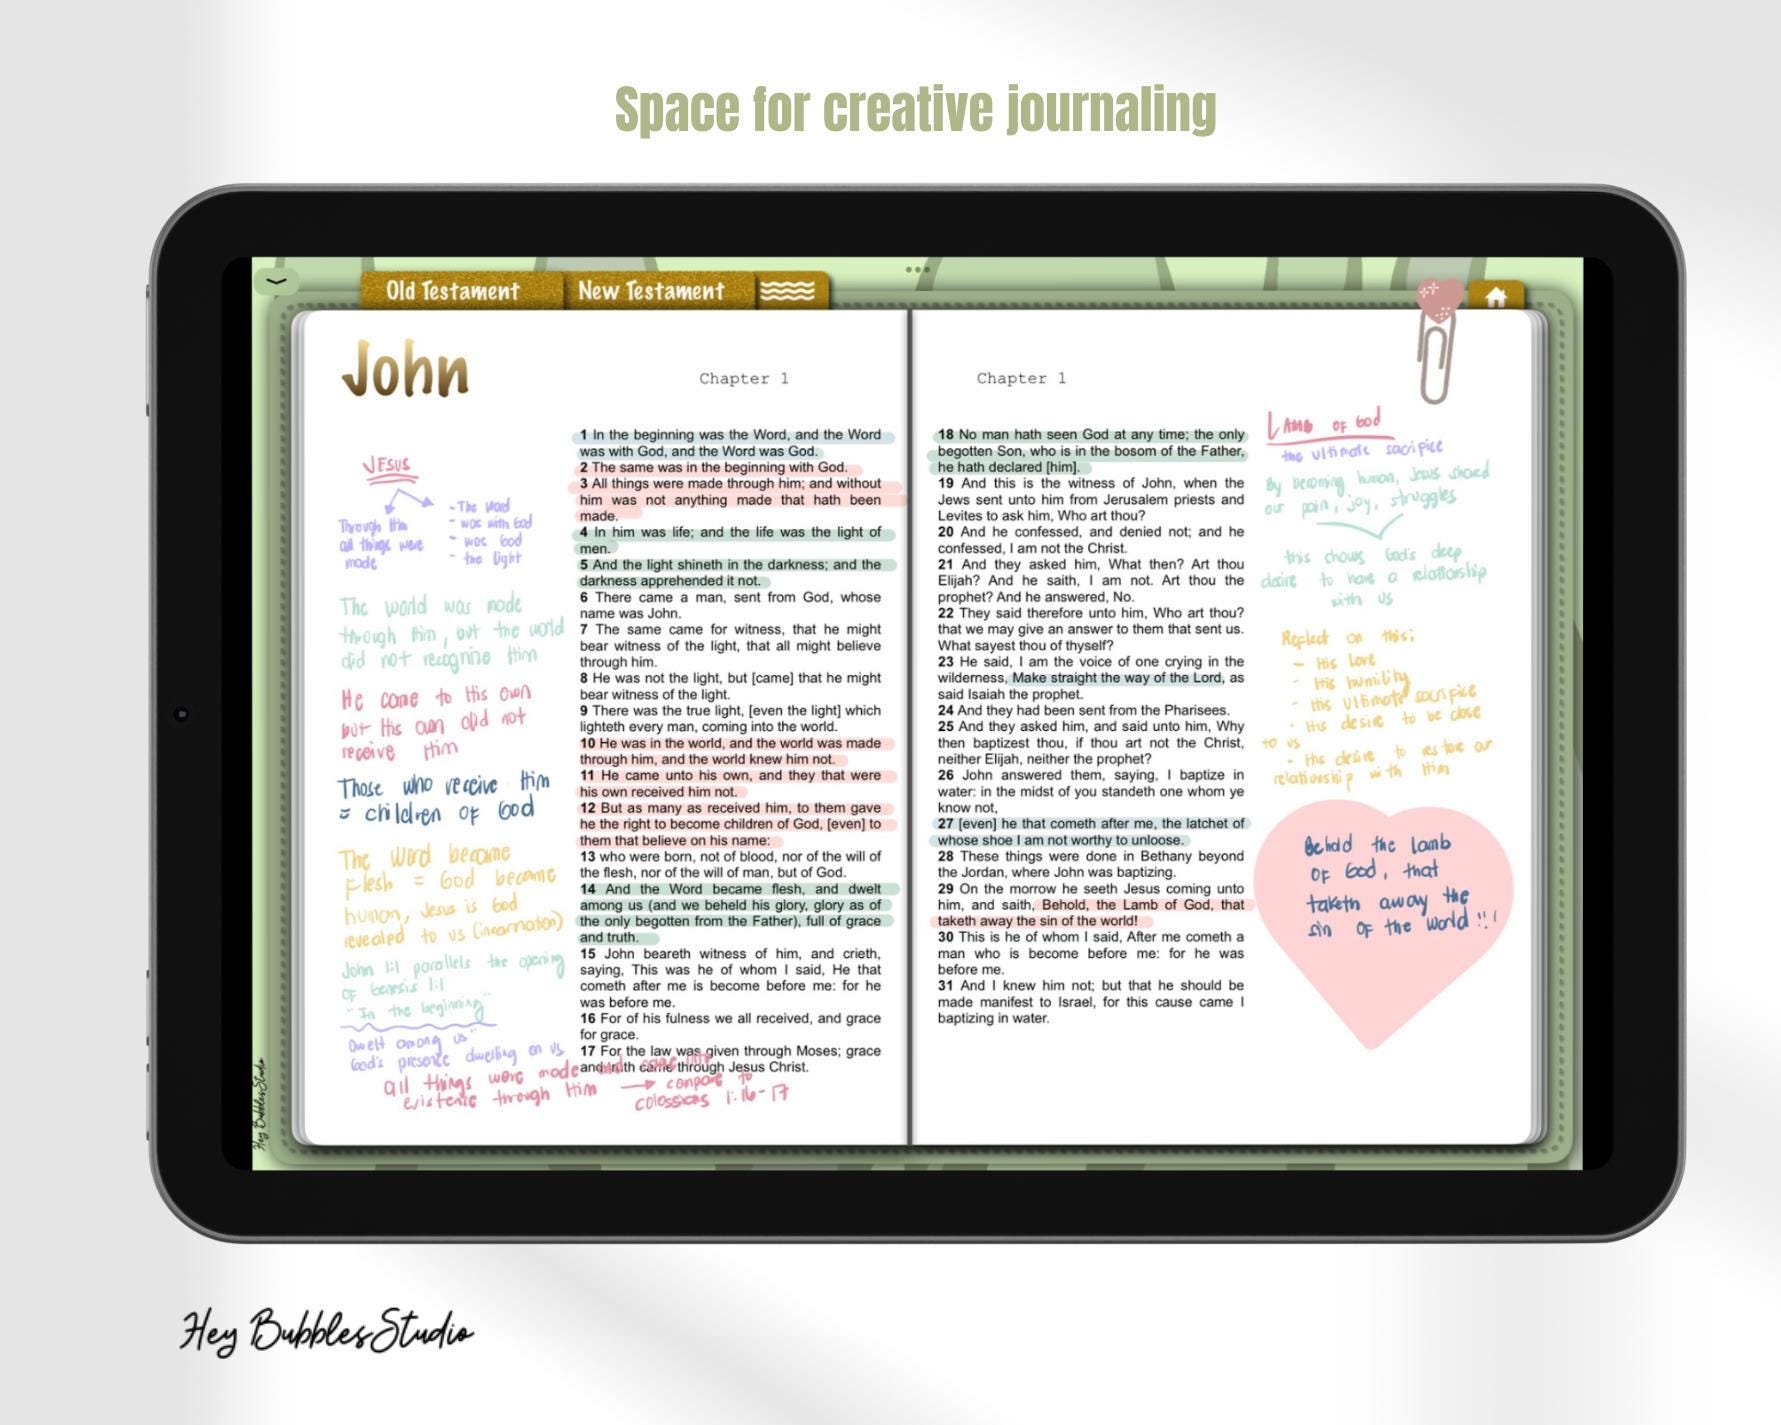 Space for creative journaling
Old Testament
New Testament
John
Chapter 1
JESUS
Through Him
all things were
made
- The Word
- was with God
- was God
- the light
The world was made
through Him, but the world
did not recognize Him
He came to His own
but His own did not
receive Him
Those who receive Him
= children of God
The Word became
flesh = God became
human, Jesus is God
revealed to us (incarnation)
John 1:1 parallels the opening
of Genesis 1:1
"In the beginning"
Dwelt among us"
God's presence dwelling on us
all things were made and came into
existence through Him
compare to
colossians 1:16-17
1 In the beginning was the Word, and the Word
was with God, and the Word was God.
2 The same was in the beginning with God.
3 All things were made through him; and without
him was not anything made that hath been
made.
4 In him was life; and the life was the light of
men.
5 And the light shineth in the darkness; and the
darkness apprehended it not.
6 There came a man, sent from God, whose
name was John.
7 The same came for witness, that he might
bear witness of the light, that all might believe
through him.
8 He was not the light, but [came] that he might
bear witness of the light.
9 There was the true light, [even the light] which
lighteth every man, coming into the world.
10 He was in the world, and the world was made
through him, and the world knew him not.
11 He came unto his own, and they that were
his own received him not.
12 But as many as received him, to them gave
he the right to become children of God, [even] to
them that believe on his name:
13 who were born, not of blood, nor of the will of
the flesh, nor of the will of man, but of God.
14 And the Word became flesh, and dwelt
among us (and we beheld his glory, glory as of
the only begotten from the Father), full of grace
and truth.
15 John beareth witness of him, and crieth,
saying, This was he of whom I said, He that
cometh after me is become before me: for he
was before me.
16 For of his fulness we all received, and grace
for grace.
17 For the law was given through Moses; grace
and truth came through Jesus Christ.
Chapter 1
18 No man hath seen God at any time; the only
begotten Son, who is in the bosom of the Father,
he hath declared [him].
19 And this is the witness of John, when the
Jews sent unto him from Jerusalem priests and
Levites to ask him, Who art thou?
20 And he confessed, and denied not; and he
confessed, I am not the Christ.
21 And they asked him, What then? Art thou
Elijah? And he saith, I am not. Art thou the
prophet? And he answered, No.
22 They said therefore unto him, Who art thou?
that we may give an answer to them that sent us.
What sayest thou of thyself?
23 He said, I am the voice of one crying in the
wilderness, Make straight the way of the Lord, as
said Isaiah the prophet.
24 And they had been sent from the Pharisees.
25 And they asked him, and said unto him, Why
then baptizest thou, if thou art not the Christ,
neither Elijah, neither the prophet?
26 John answered them, saying, I baptize in
water: in the midst of you standeth one whom ye
know not,
27 [even] he that cometh after me, the latchet of
whose shoe I am not worthy to unloose.
28 These things were done in Bethany beyond
the Jordan, where John was baptizing.
29 On the morrow he seeth Jesus coming unto
him, and saith, Behold, the Lamb of God, that
taketh away the sin of the world!
30 This is he of whom I said, After me cometh a
man who is become before me: for he was
before me.
31 And I knew him not; but that he should be
made manifest to Israel, for this cause came I
baptizing in water.
LAMB OF GOD
the ultimate sacrifice
By becoming human, Jesus shared
our pain, joy, struggles
this shows God's deep
desire to have a relationship
with us
Reflect on this:
- His love
- His humility
- His ultimate sacrifice
- His desire to be close
to us
- His desire to restore our
relationship with Him
Behold the lamb
OF God, that
taketh away the
sin of the world!!!
Hey BubblesStudio
Hey BubblesStudio